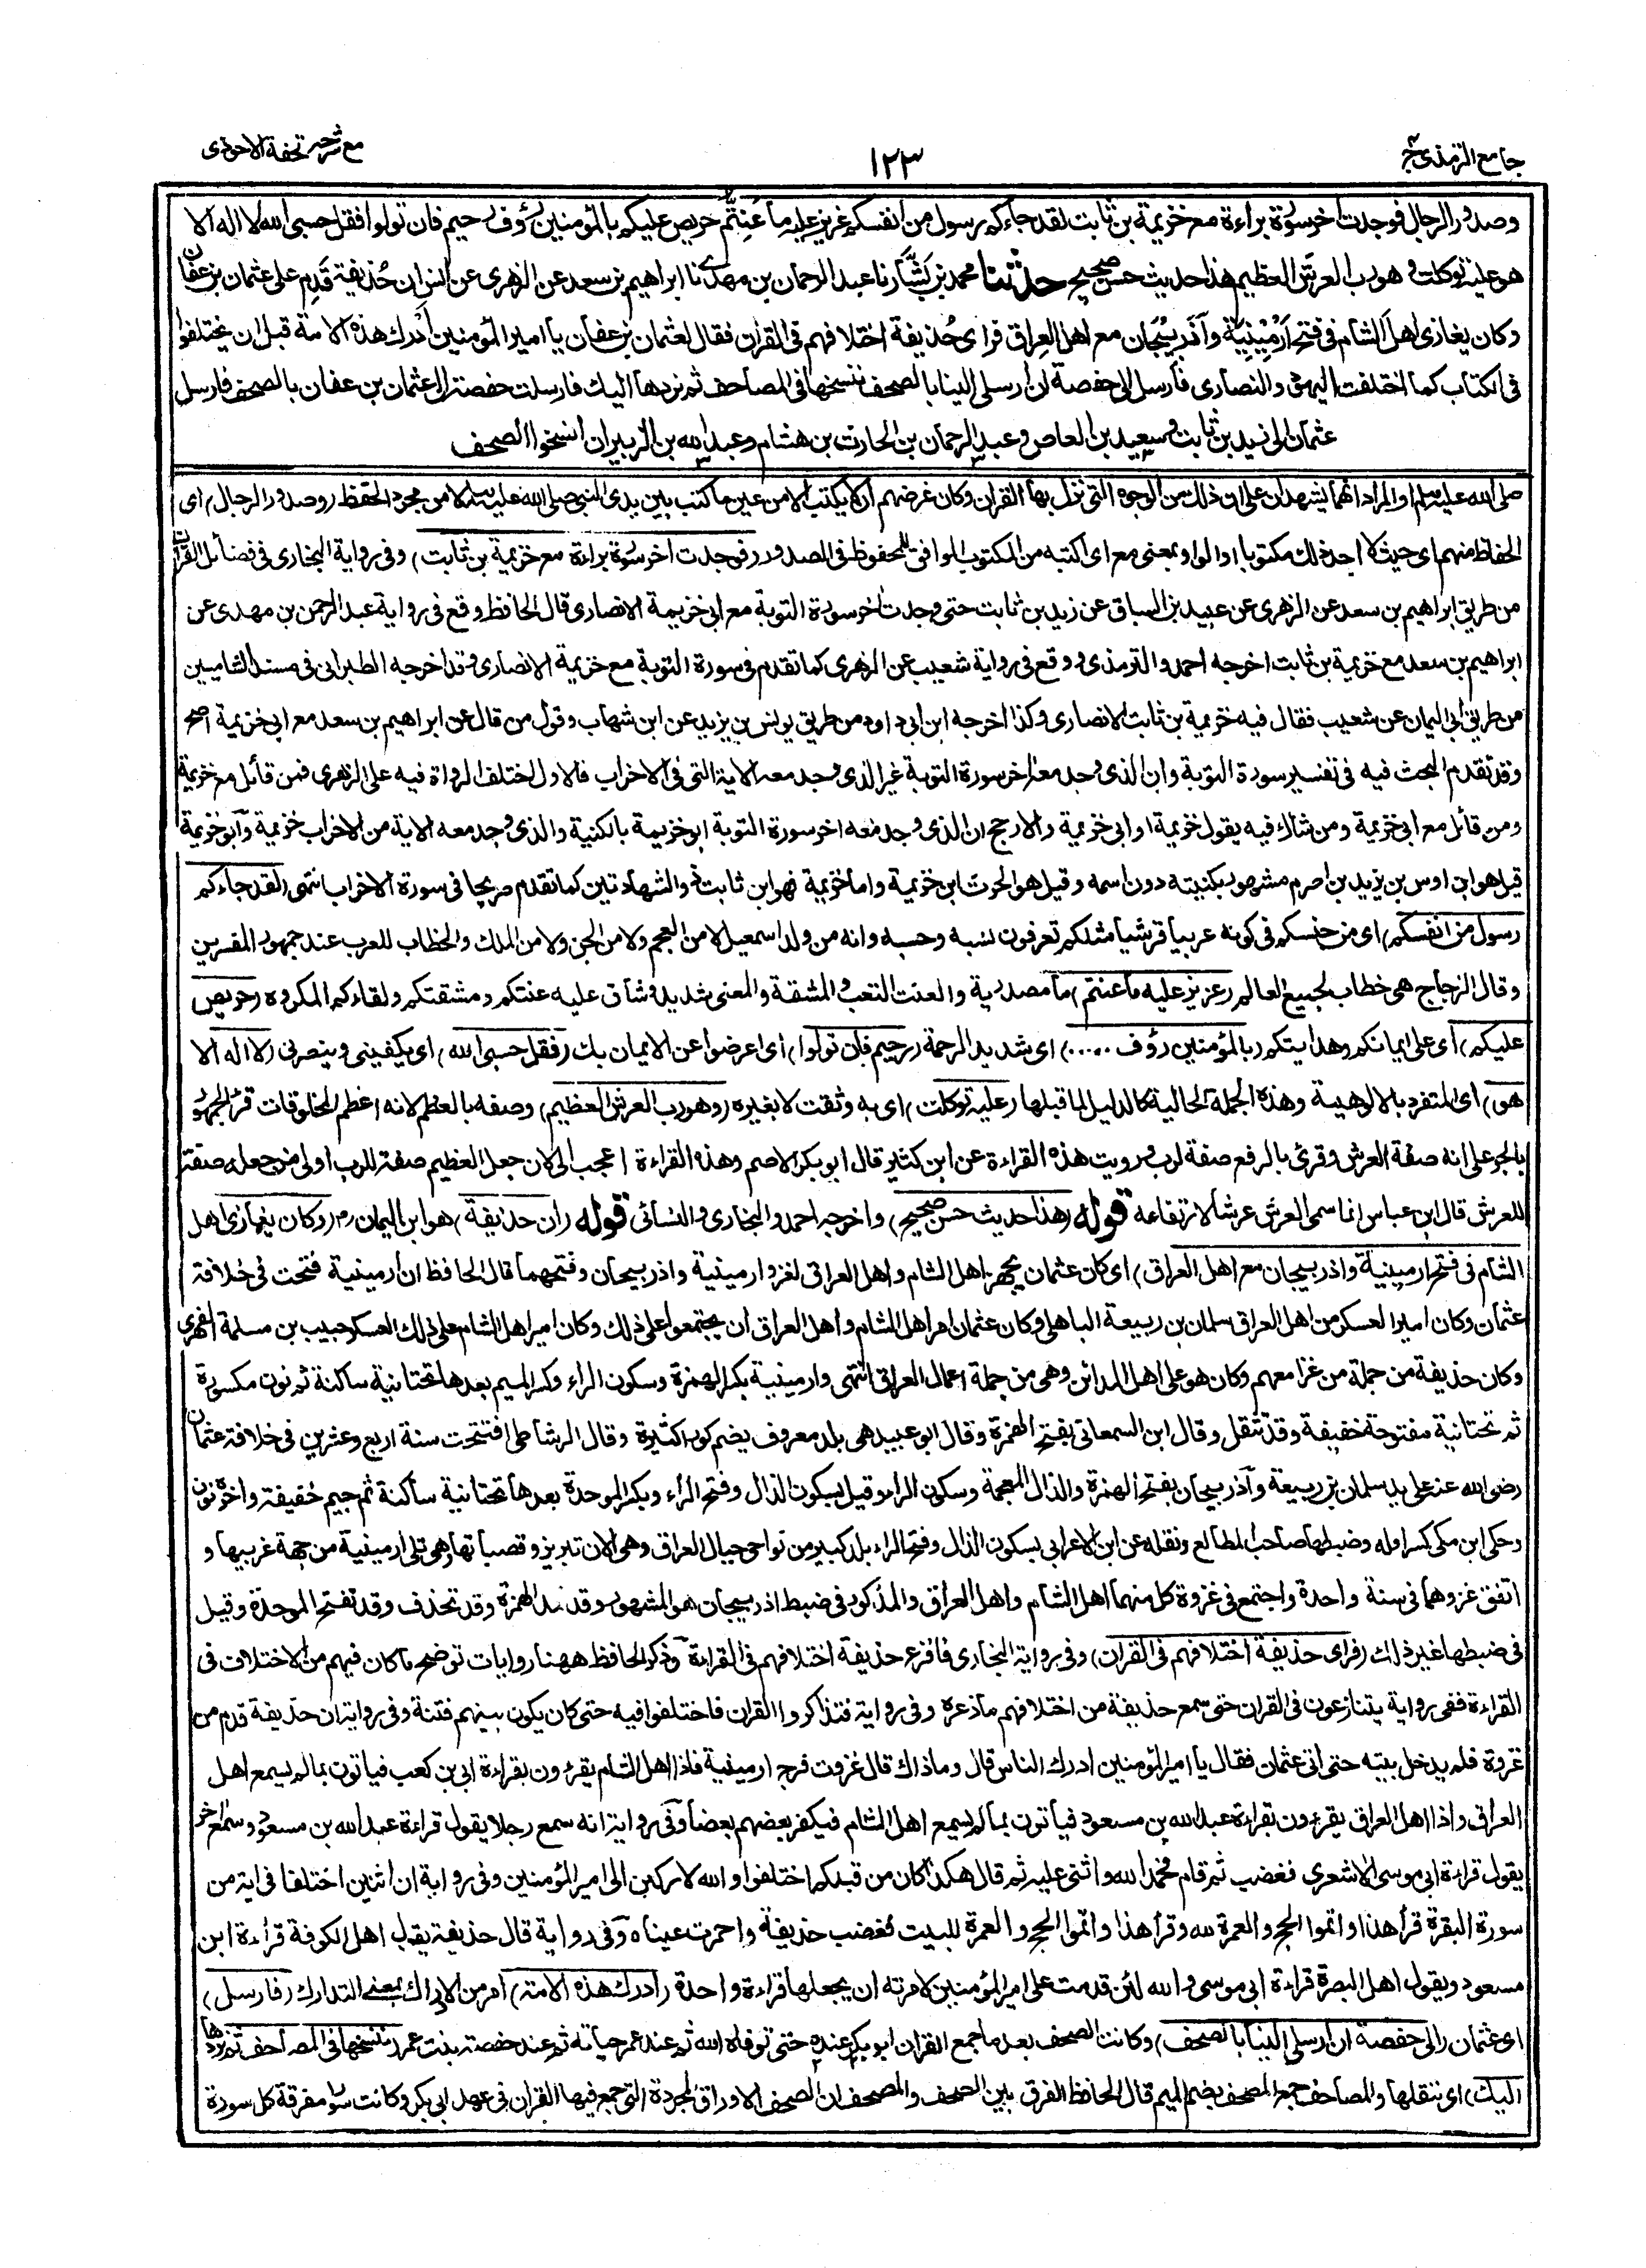 جامع الترمذی ج ۴
۱۲۳
مع شرحہ تحفة الاحوذی
وصدور الرجال فوجدت اخر سورة براءة مع خزيمة بن ثابت لقد جاءكم رسول من انفسكم عزيز عليه ما عنتم حريص عليكم بالمؤمنين رؤف رحيم فان تولوا فقل حسبي الله لا اله الا
هو عليه توكلت وهو رب العرش العظيم هذا حديث حسن صحيح حدثنا محمد بن بشار نا عبد الرحمان بن مهدي نا ابراهيم بن سعد عن الزهري عن انس ان حُذيفة قَدِم على عثمان بن عفان
وكان يغازي اهل الشام في فتح اَرْمِيْنِيَة وآذربيجان مع اهل العراق فراى حُذيفة اختلافهم في القران فقال لعثمان بن عفان يا امير المؤمنين أدرك هذه الامة قبل ان يختلفوا
في الكتاب كما اختلفت اليهود والنصارى فأرسل الى حفصة ان ارسلي الينا بالصحف ننسخها في المصاحف ثم نردها اليك فارسلت حفصة الى عثمان بن عفان بالصحف فارسل
عثمان الى زيد بن ثابت وسعيد بن العاص وعبد الرحمان بن الحارث بن هشام وعبد الله بن الزبير ان انسخوا الصحف
صلى الله عليه وسلم او المراد انهما يشهدان على ان ذلك من الوجوه التي نزل بها القران وكان غرضهم ان لا يكتب الا من عين ما كتب بين يدي النبي صلى الله عليه وسلم لا من مجرد الحفظ (وصدور الرجال) اى
الحفاظ منهم اى حيث لا اجد ذلك مكتوبا او الواو بمعنى مع اى اكتبه من المكتوب الموافق للمحفوظ في الصدور (فوجدت اخر سورة براءة مع خزيمة بن ثابت) وفي رواية البخاري في فضائل القران
من طريق ابراهيم بن سعد عن الزهري عن عبيد بن السباق عن زيد بن ثابت حتى وجدت اخر سورة التوبة مع ابي خزيمة الانصاري قال الحافظ وقع في رواية عبد الرحمن بن مهدي عن
ابراهيم بن سعد مع خزيمة بن ثابت اخرجه احمد والترمذي ووقع في رواية شعيب عن الزهري كما تقدم في سورة التوبة مع خزيمة الانصاري وقد اخرجه الطبراني في مسند الشاميين
من طريق ابي اليمان عن شعيب فقال فيه خزيمة بن ثابت الانصاري وكذا اخرجه ابن ابي داود من طريق يونس بن يزيد عن ابن شهاب وقول من قال عن ابراهيم بن سعد مع ابي خزيمة اصح
وقد تقدم البحث فيه في تفسير سورة التوبة وان الذي وجد معه اخر سورة التوبة غير الذي وجد معه الاية التي في الاحزاب فالاول اختلف الرواة فيه على الزهري فمن قائل مع خزيمة
ومن قائل مع ابي خزيمة ومن شاك فيه يقول خزيمة او ابي خزيمة والارجح ان الذي وجد معه اخر سورة التوبة ابو خزيمة بالكنية والذي وجد معه الاية من الاحزاب خزيمة وابو خزيمة
قيل هو ابن اوس بن يزيد بن اصرم مشهور بكنيته دون اسمه وقيل هو الحرث ابن خزيمة واما خزيمة فهو ابن ثابت ذو الشهادتين كما تقدم صريحا في سورة الاحزاب انتهى (لقد جاءكم
رسول من انفسكم) اى من جنسكم في كونه عربيا قرشيا مثلكم تعرفون نسبه وحسبه وانه من ولد اسمعيل لا من العجم ولا من الجن ولا من الملك والخطاب للعرب عند جمهور المفسرين
وقال الزجاج هي خطاب لجميع العالم (عزيز عليه ما عنتم) ما مصدرية والعنت التعب والمشقة والمعنى شديد وشاق عليه عنتكم ومشقتكم ولقاءكم المكروه (حريص
عليكم) اى على ايمانكم وهدايتكم (بالمؤمنين رؤف .....) اى شديد الرحمة (رحيم فان تولوا) اى اعرضوا عن الايمان بك (فقل حسبي الله) اى يكفيني وينصرني (لا اله الا
هو) اى المتفرد بالالوهية وهذه الجملة الحالية كالدليل لما قبلها (عليه توكلت) اى به وثقت لا بغيره (وهو رب العرش العظيم) وصفه بالعظم لانه اعظم المخلوقات قرأ الجمهور
بالجر على انه صفة العرش وقرئ بالرفع صفة لرب ورويت هذه القراءة عن ابن كثير قال ابو بكر الاصم وهذه القراءة اعجب الى لان جعل العظيم صفة للرب اولى من جعله صفة
للعرش قال ابن عباس انما سمى العرش عرشا لارتفاعه قوله (هذا حديث حسن صحيح) واخرجه احمد والبخاري والنسائي قوله (ان حذيفة) هو ابن اليمان رض (وكان يغازي اهل
الشام في فتح ارمينية واذربيجان مع اهل العراق) اى كان عثمان يجهز اهل الشام واهل العراق لغزو ارمينية واذربيجان وفتحهما قال الحافظ ان ارمينية فتحت في خلافة
عثمان وكان امير العسكر من اهل العراق سلمان بن ربيعة الباهلي وكان عثمان امر اهل الشام واهل العراق ان يجتمعوا على ذلك وكان امير اهل الشام على ذلك العسكر حبيب بن مسلمة الفهري
وكان حذيفة من جملة من غزا معهم وكان هو على اهل المدائن وهي من جملة اعمال العراق انتهى وارمينية بكسر الهمزة وسكون الراء وكسر الميم بعدها تحتانية ساكنة ثم نون مكسورة
ثم تحتانية مفتوحة خفيفة وقد تثقل وقال ابن السمعاني بفتح الهمزة وقال ابو عبيد هي بلد معروف يضم كورا كثيرة وقال الرشاطي افتتحت سنة اربع وعشرين في خلافة عثمان
رضي الله عنه على يد سلمان بن ربيعة وآذربيجان بفتح الهمزة والذال المعجمة وسكون الراء وقيل بسكون الذال وفتح الراء وبكسر الموحدة بعدها تحتانية ساكنة ثم جيم خفيفة واخره نون
وحكى ابن مكي كسر اوله وضبطها صاحب المطالع ونقله عن ابن الاعرابي بسكون الذال وفتح الراء بلد كبير من نواحي جبال العراق وهي الان تبريز وقصباتها وهي تلى ارمينية من جهة غربيها و
اتفق غزوهما في سنة واحدة واجتمع في غزوة كل منهما اهل الشام واهل العراق والمذكور في ضبط اذربيجان هو المشهور وقد تمد الهمزة وقد تحذف وقد تفتح الموحدة وقيل
في ضبطها غير ذلك (فراى حذيفة اختلافهم في القران) وفي رواية البخاري فافزع حذيفة اختلافهم في القراءة وذكر الحافظ ههنا روايات توضح ما كان فيهم من الاختلاف في
القراءة ففي رواية يتنازعون في القران حتى سمع حذيفة من اختلافهم ما ذعره وفي رواية فتذاكروا القران فاختلفوا فيه حتى كان يكون بينهم فتنة وفي رواية ان حذيفة قدم من
غزوة فلم يدخل بيته حتى اتى عثمان فقال يا امير المؤمنين ادرك الناس قال وما ذاك قال غزوت فرج ارمينية فاذا اهل الشام يقرءون بقراءة ابي بن كعب فياتون بما لم يسمع اهل
العراق واذا اهل العراق يقرءون بقراءة عبد الله بن مسعود فيأتون بما لم يسمع اهل الشام فيكفر بعضهم بعضا وفي رواية انه سمع رجلا يقول قراءة عبد الله بن مسعود وسمع اخر
يقول قراءة ابي موسى الاشعري فغضب ثم قام فحمد الله واثنى عليه ثم قال هكذا كان من قبلكم اختلفوا والله لاركبن الى امير المؤمنين وفي رواية ان اثنين اختلفا في اية من
سورة البقرة قرأ هذا واتموا الحج والعمرة لله وقرأ هذا واتموا الحج والعمرة للبيت فغضب حذيفة واحمرت عيناه وفي رواية قال حذيفة يقول اهل الكوفة قراءة ابن
مسعود ويقول اهل البصرة قراءة ابي موسى والله لئن قدمت على امير المؤمنين لامرته ان يجعلها قراءة واحدة (ادرك هذه الامة) امر من الادراك بمعنى التدارك (فارسل)
اى عثمان (الى حفصة ان ارسلي الينا بالصحف) وكانت الصحف بعد ما جمع القران ابو بكر عنده حتى توفاه الله ثم عند عمر حياته ثم عند حفصة بنت عمر (ننسخها في المصاحف ثم نردها
اليك) اى ننقلها والمصاحف جمع المصحف بضم الميم قال الحافظ الفرق بين الصحف والمصحف ان الصحف الاوراق المجردة التي جمع فيها القران في عهد ابي بكر وكانت سورا مفرقة كل سورة